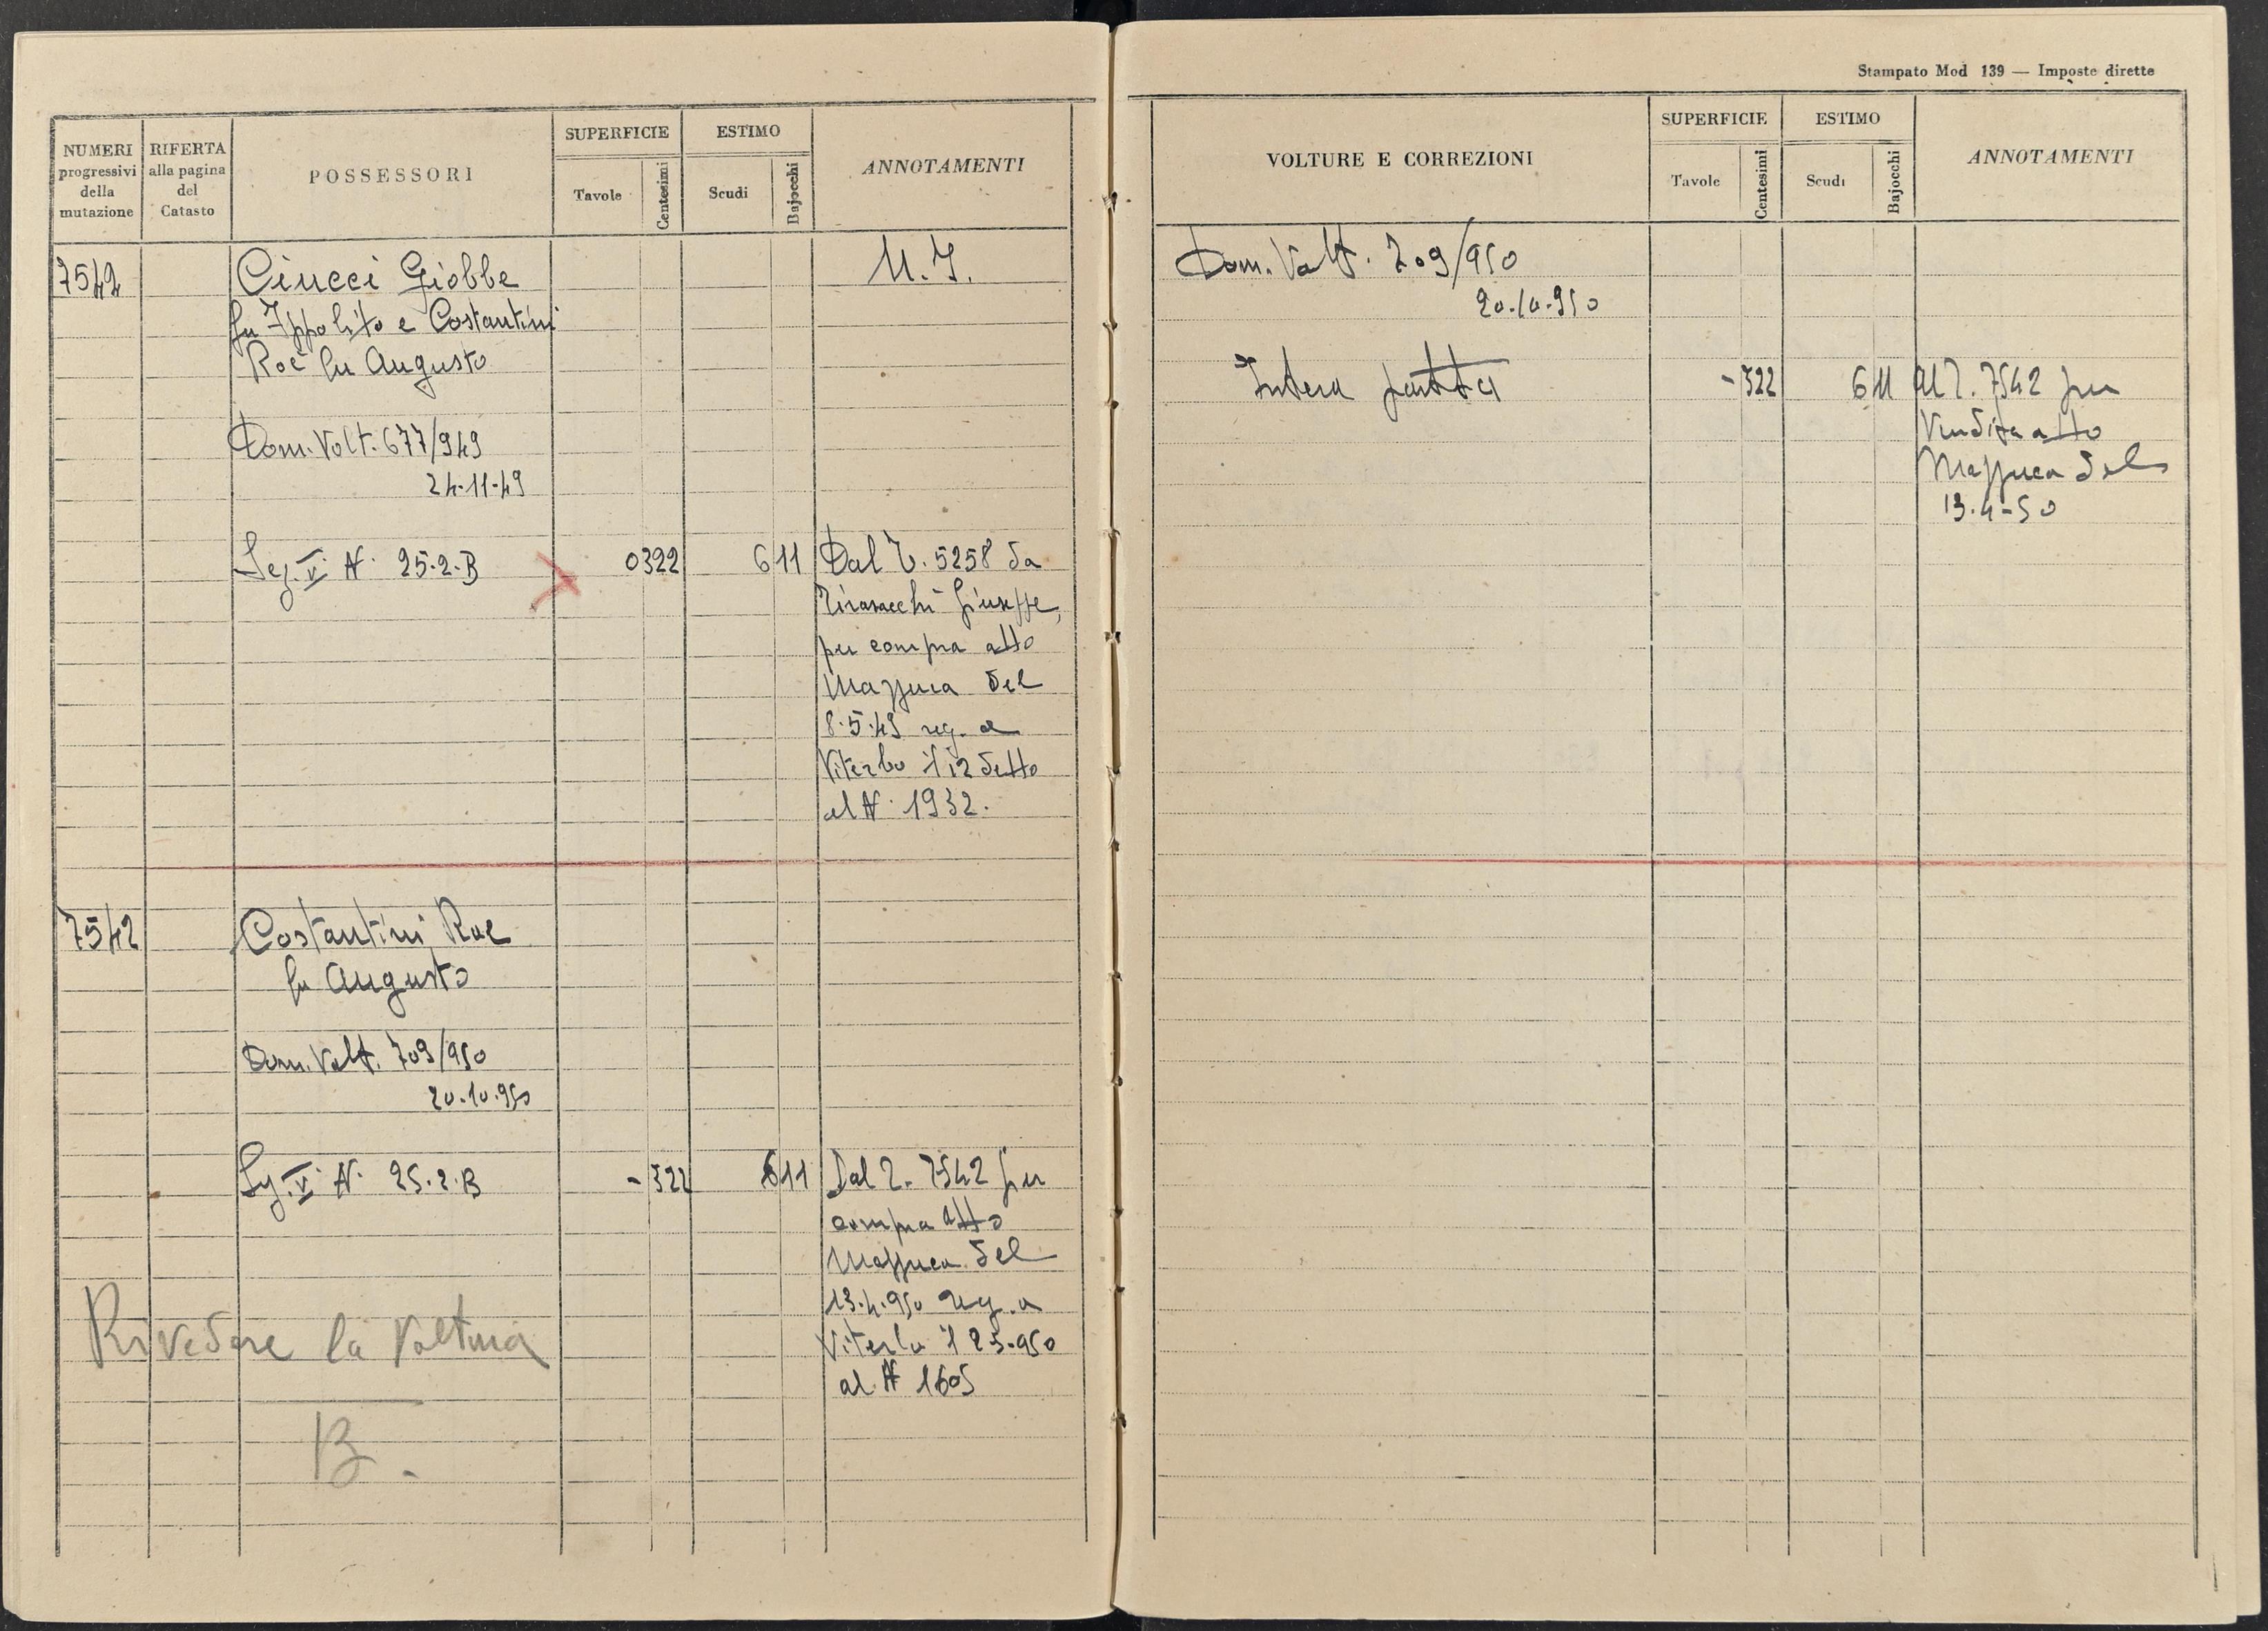 NUMERI progressivi della mutazione
RIFERTA alla pagina del Catasto
POSSESSORI
SUPERFICIE
Tavole
Centesimi
ESTIMO
Scudi
Bajocchi
ANNOTAMENTI
7542
Ciucci Giobbe
fu Ippolito e Costantini
Roè fu Augusto
M.I.
Dom. Volt. 677/949
24-11-49
Sez. V N. 25-2-B
0322
611
Dal T. 5258 da
Giuseppe,
per compra atto
Mazzuca del
8-5-49 reg. a
Viterbo il 12 detto
al N. 1932.
7542
Costantini Roe
fu Augusto
Dom. Volt. 709/950
20.10.950
Sez. V N. 25.2.B
- 322
611
Dal T. 7542 per
compra atto
Mazzuca del
13.4.950 reg. a
Viterbo il 2-5-950
al N 1605
Rivedere la Voltura
B.
Stampato Mod 139 — Imposte dirette
VOLTURE E CORREZIONI
SUPERFICIE
Tavole
Centesimi
ESTIMO
Scudi
Bajocchi
ANNOTAMENTI
Dom. Volt. 709/950
20.10.950
Intera partita
- 322
611
Al T. 7542 per
Vendita atto
Mazzuca del
13.4-50